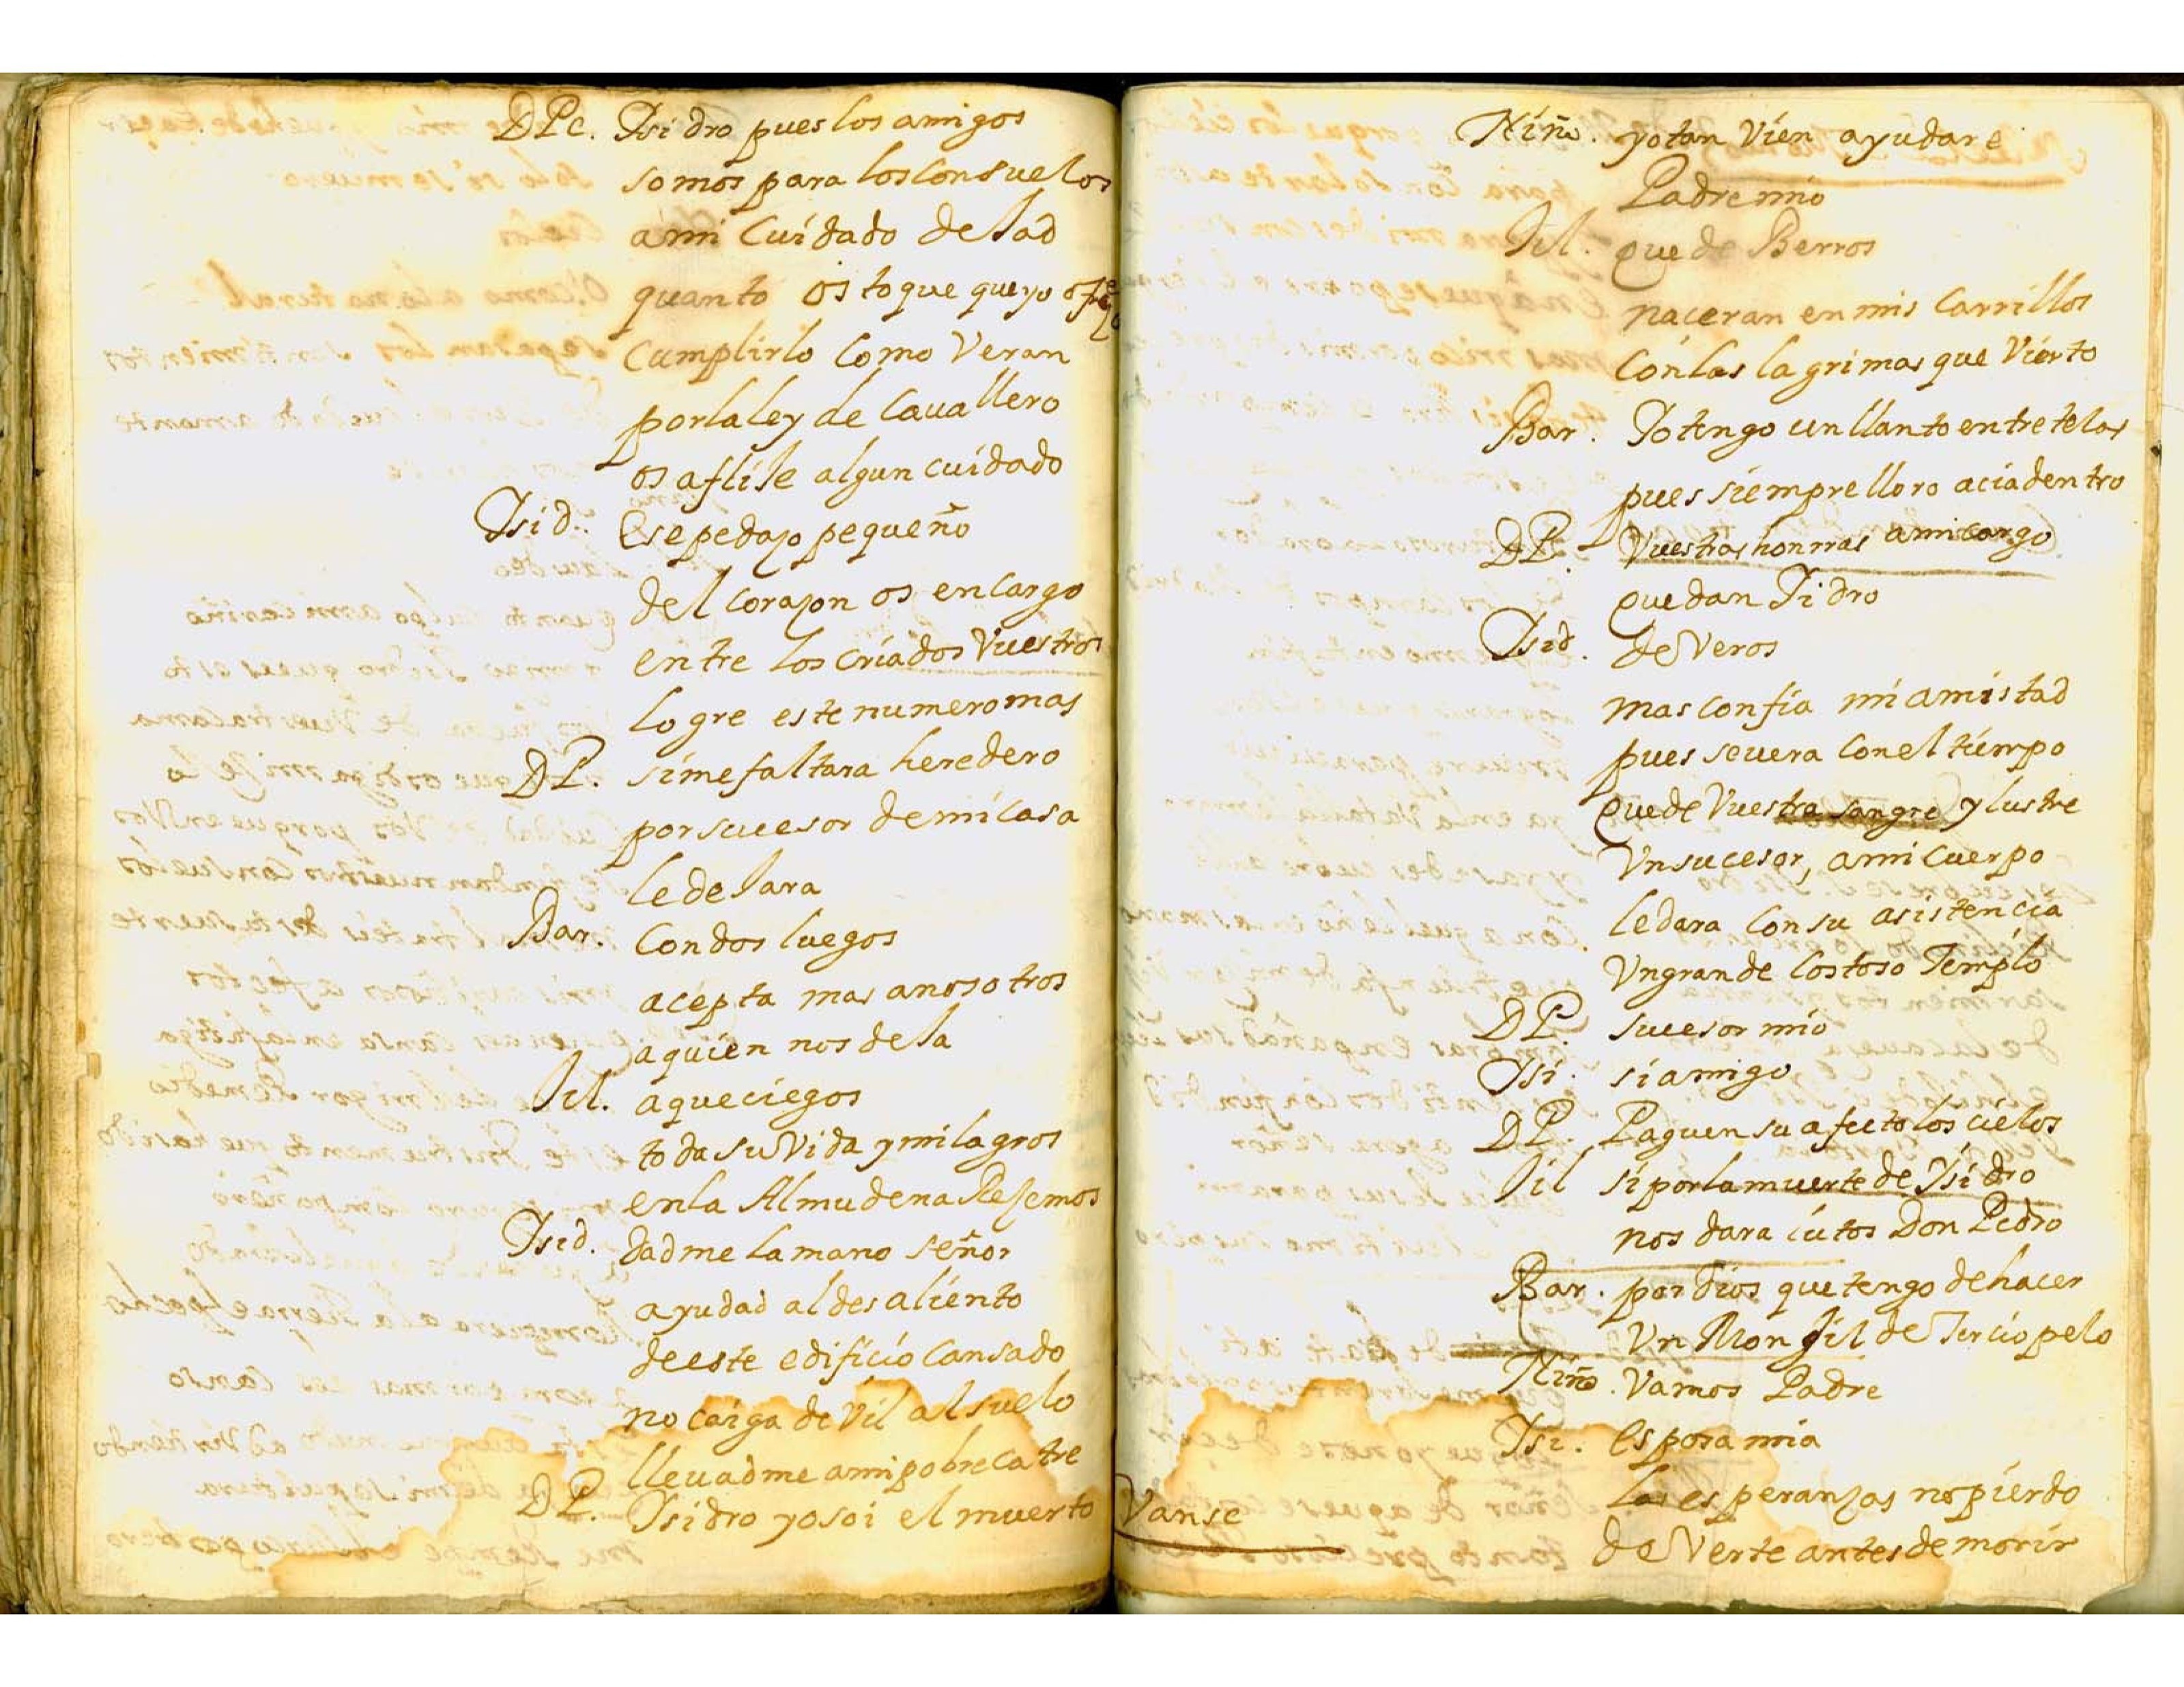 DPe. Isidro pues los amigos
somos para los consuelos
a mi Cuidado dejad
quanto os toque que yo ofrezco
Cumplirlo Como Veran
por la ley de Cauallero
os aflije algun cuidado
Isid. Ese pedazo pequeño
del Corazon os encargo
entre los criados Vuestros
logre este numero mas
DP. si me faltara heredero
por sucesor de mi casa
le dejara
Bar. Con dos luegos
acepta mas a nosotros
a quien nos deja
Jil. a que ciegos
toda su Vida y milagros
en la Almudena Resemos
Isid. dadme la mano señor
ayudad al desaliento
de este edificio Cansado
no caiga de Vil al suelo
lleuadme a mi pobre catre
DP. Isidro yo soi el muerto
Niño. yo tan Vien ayudare
Padre mio
Jil. que de Berros
naceran en mis Carrillos
Con las lagrimas que Vierto
Bar. Yo tengo un llanto entretelas
pues siempre lloro acia dentro
DP. Vuestras honrras a mi cargo
quedan Isidro
Isid. de Veros
mas confia mi amistad
pues se uera Con el tiempo
que de Vuestra sangre y lustre
Vn sucesor, a mi Cuerpo
le dara Con su asistencia
Vn grande Costoso Templo
DP. sucesor mio
Isi. si amigo
DP. Paguen su afecto los cielos
Jil si por la muerte de Isidro
nos dara lutos Don Pedro
Bar. por Dios que tengo de hacer
Vn Monjil de Terciopelo
Niño. Vamos Padre
Isi. Esposa mia
las esperanzas no pierdo
de Verte antes de morir
Vanse